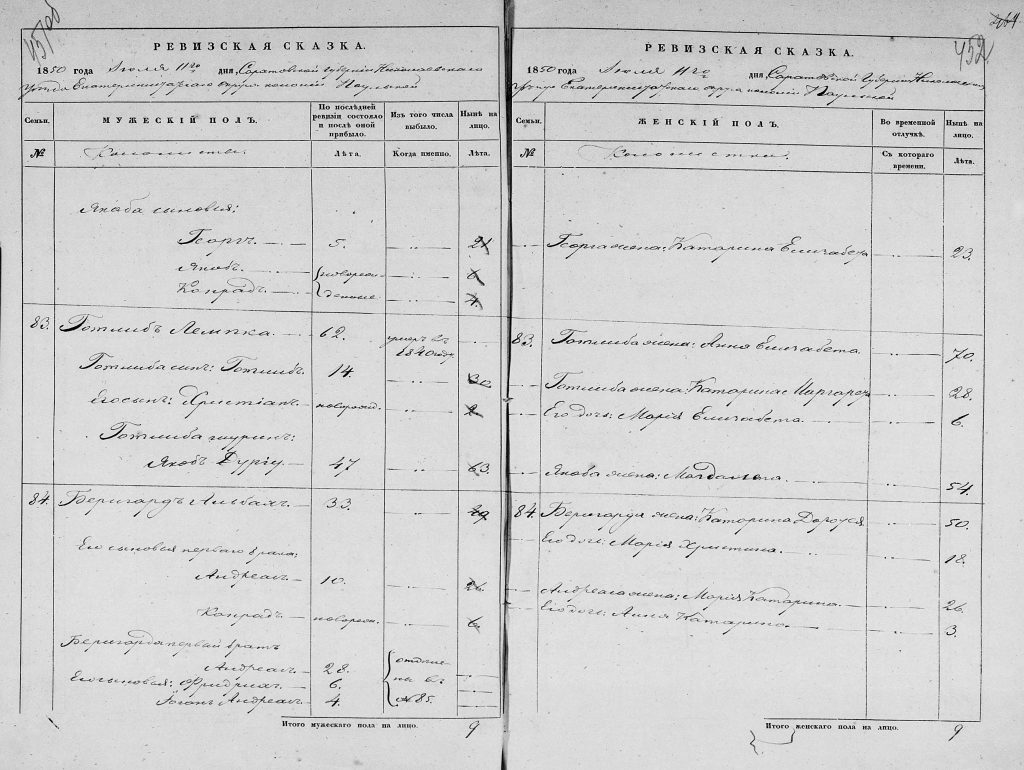 451 об
РЕВИЗСКАЯ СКАЗКА.
1850 года Июля 11го дня, Саратовской Губернии Николаевскаго
уезда Екатеринштатскаго округа колонии Паульской
Семьи.
МУЖЕСКІЙ ПОЛЪ.
По последней ревизіи состояло и после оной прибыло.
Изъ того числа выбыло.
Ныне на лицо.
№
Колонисты.
Лѣта.
Когда именно.
Лѣта.
Якоба сыновья:
Георгъ. 5. 21
Якобъ. новорож- 6
Конрадъ. денные 4.
83. Готлибъ Лемпка. 62. умеръ въ 1840 году
Готлиба сынъ: Готлибъ. 14. 30.
Его сынъ: Христіанъ. новорожд. 2
Готлиба шуринъ:
Якобъ 47 63.
84. Бернгардъ Альбахъ. 33. 49
Его сыновья перваго брака:
Андреасъ 10. 26.
Конрадъ новорож. 6.
Бернгарда первый братъ
Андреасъ 28. отделе-
Его сыновья: Фридрихъ. 6. ны въ
Іоганъ Андреасъ 4. № 85.
Итого мужескаго пола на лицо. 9
452
РЕВИЗСКАЯ СКАЗКА.
1850 года Июля 11го дня, Саратовской Губернии Николаевск.
уезда Екатеринштатскаго округа колонии Паульской
Семьи.
ЖЕНСКІЙ ПОЛЪ.
Во временной отлучкѣ.
Нынѣ на лицо.
№
Колонистки.
Съ котораго времени.
Лѣта.
Георга жена: Катарина Елизабета 23.
83. Готлиба жена: Анна Елизабета. 70.
Готлиба жена: Катарина Маргарета 28.
Его дочь: Марія Елизабета. 6.
Якоба жена: Магдалена. 54.
84. Бернгарда жена: Катарина Доротея 50.
Его дочь: Марія Христина. 18.
Андреаса жена: Марія Катарина. 26.
Его дочь: Анна Катарина. 3.
Итого женскаго пола на лицо. 9